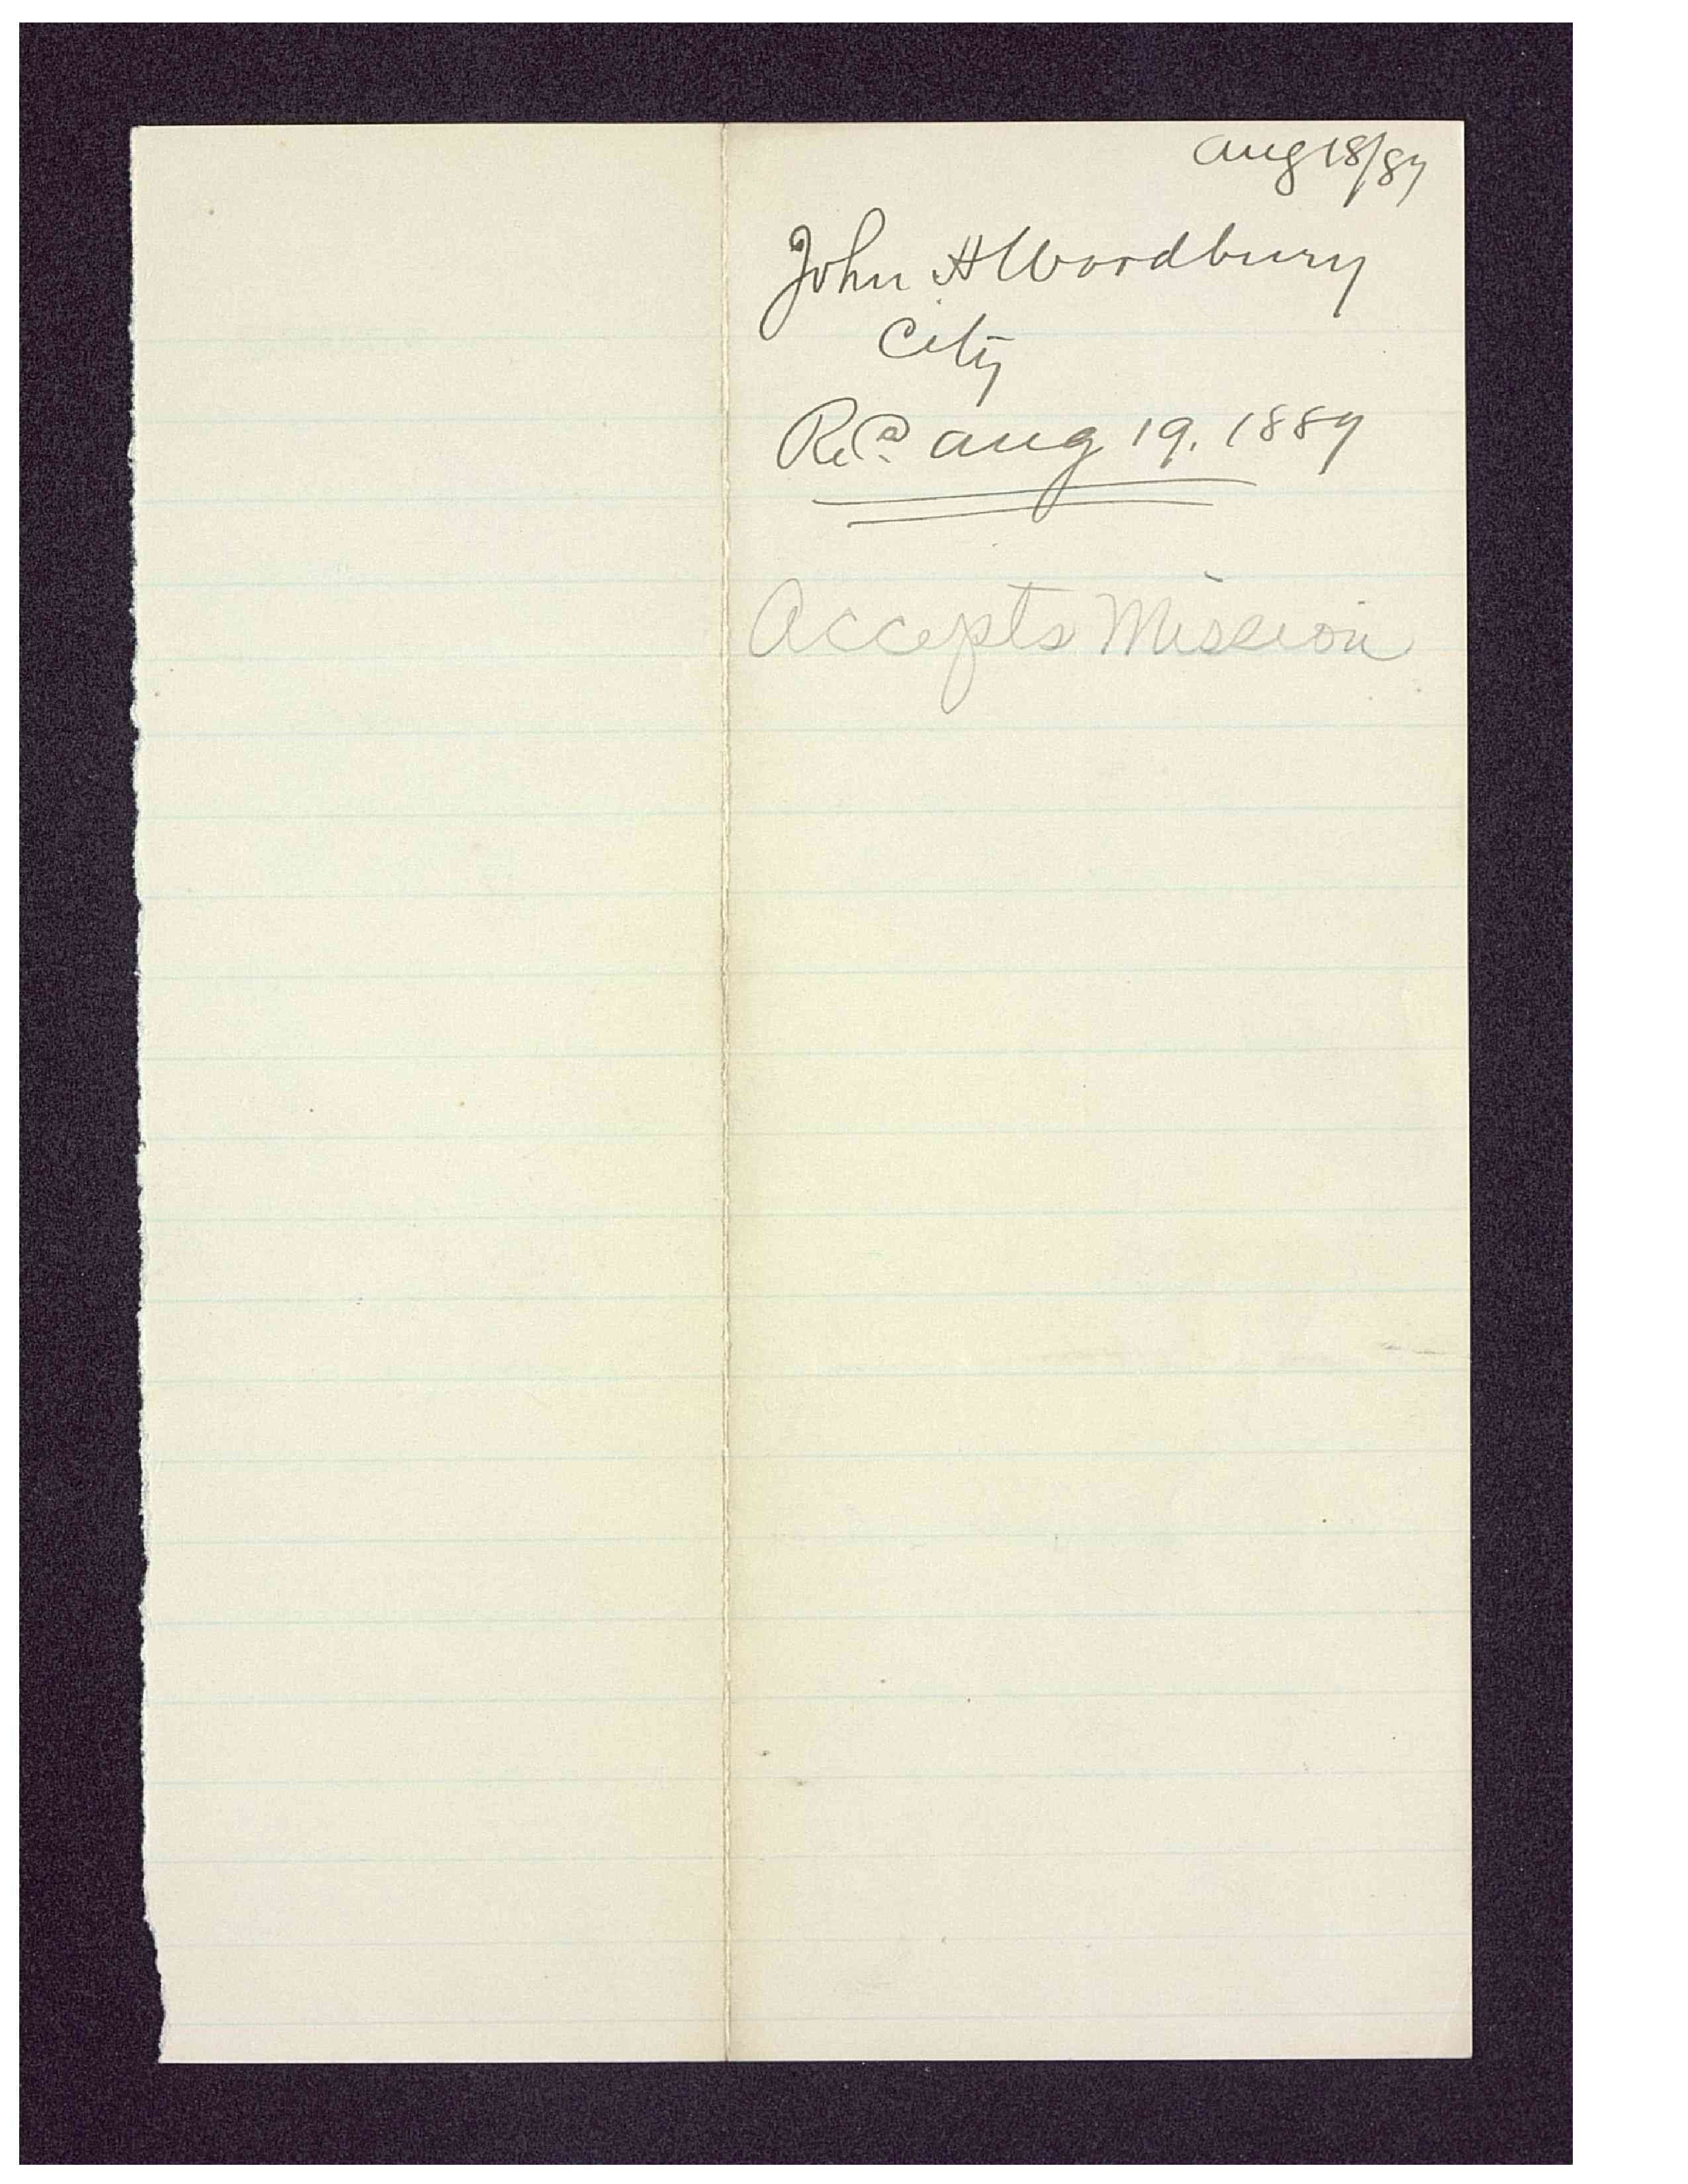 Aug 18/87
John H Woodbury
City
Recd Aug 19. 1887
Accepts Mission